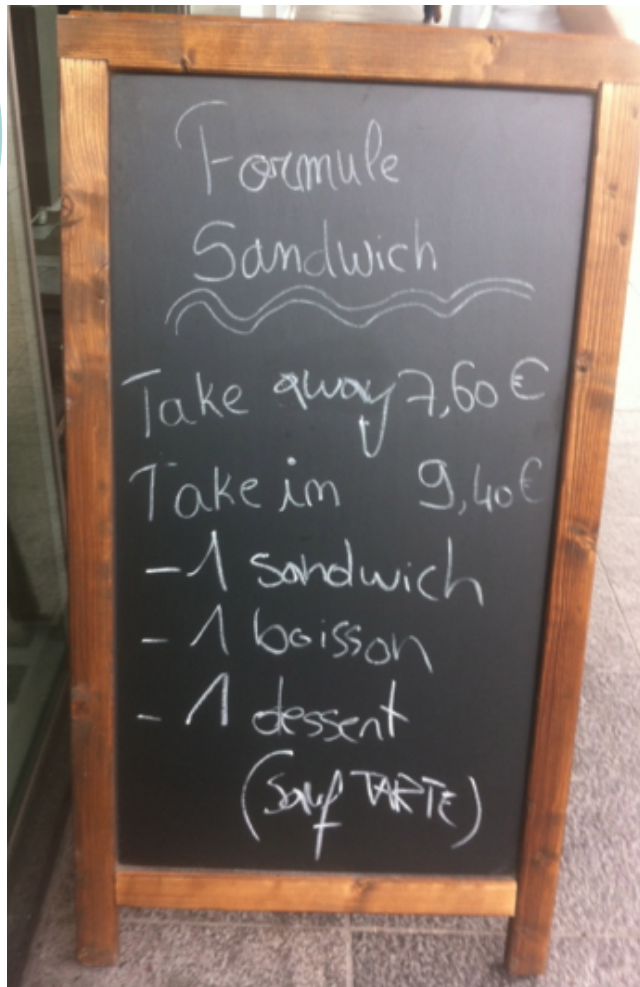 Formule
Sandwich
Take away 7,60 €
Take in 9,40 €
- 1 sandwich
- 1 boisson
- 1 dessert
(sauf TARTE)